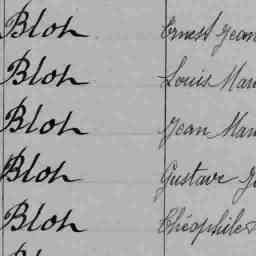 Bloh Ernest Jean
Bloh Louis Mar
Bloh Jean Mar
Bloh Gustave
Bloh Théophile